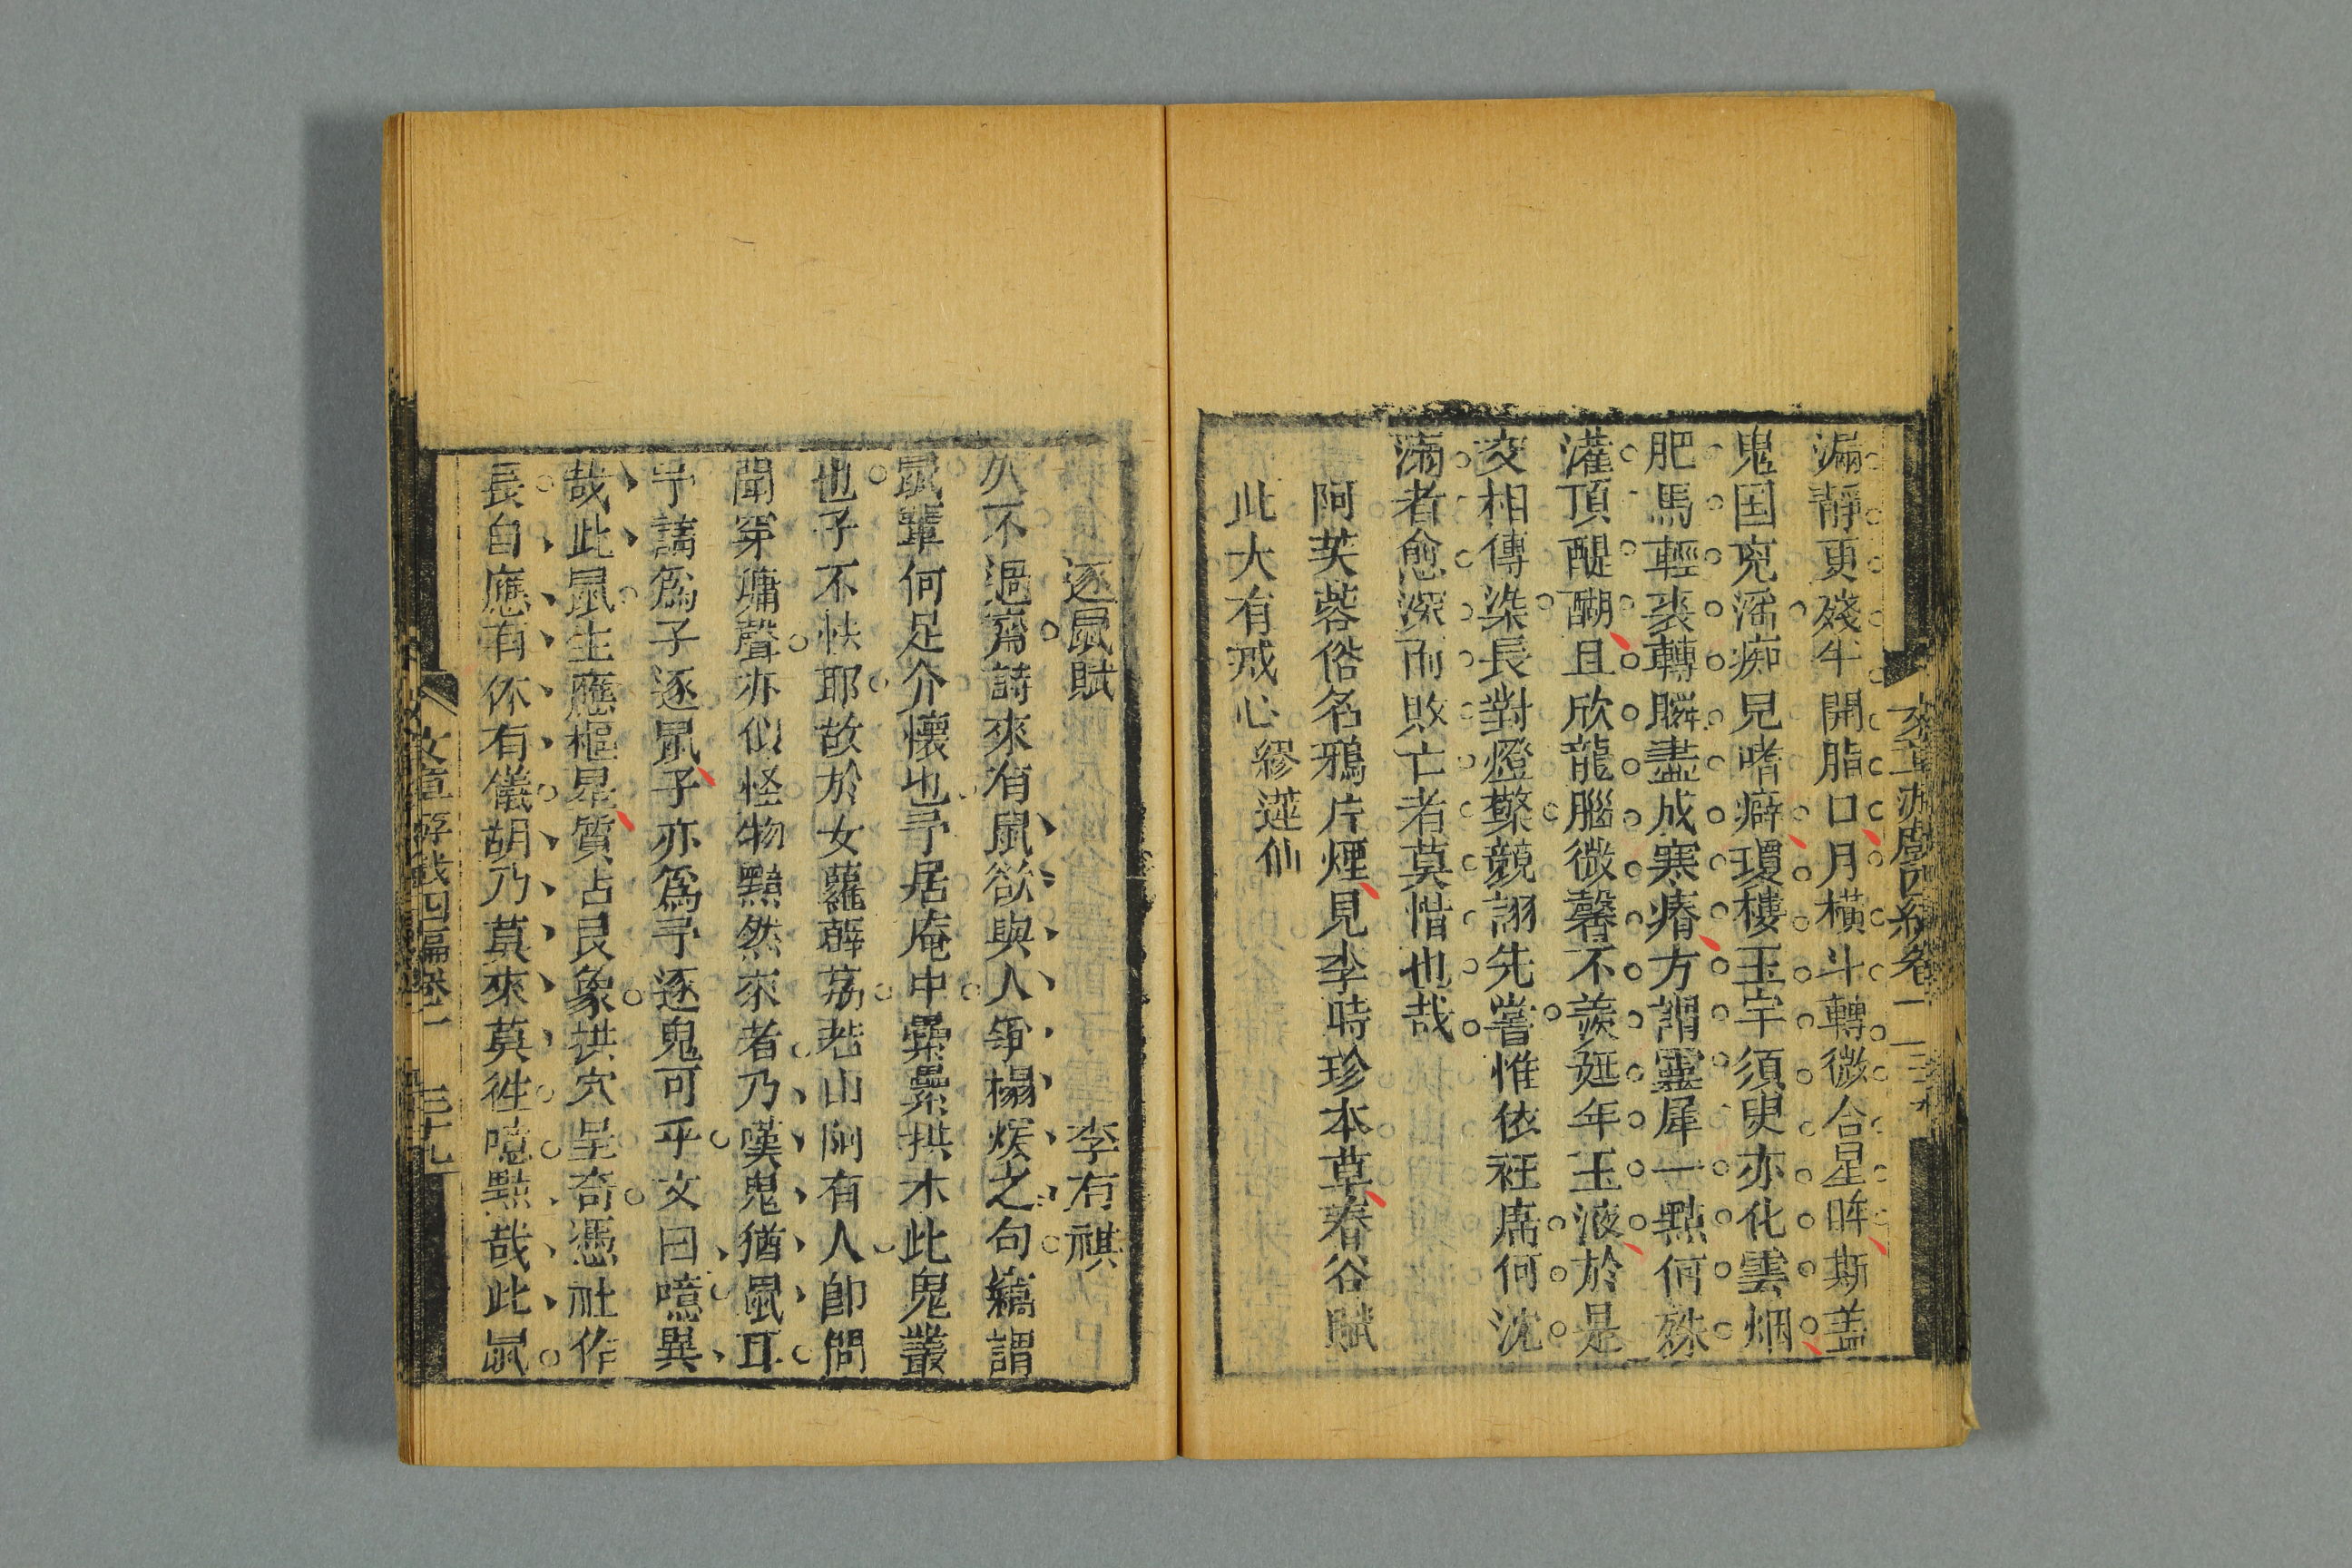 漏靜更殘牛開脂口月橫斗轉微合星眸斯盖
鬼国兖滛痴兒嗜癖瓊樓玉宇須臾亦化雲烟
肥馬輕裘轉瞬盡成寒瘠方謂靈犀一㸃何殊
灌頂醍醐且欣龍腦微馨不羨延年玉液於是
交相傳染長對燈檠競詡先嘗惟依衽席何沈
湎者愈深而敗亡者莫惜也哉
阿芙蓉俗名鴉片煙見李時珍本草春谷賦
此大有戒心 繆蓮仙
逐鼠賦 李有祺
久不過齋詩來有鼠欲與人爭榻煖之句竊謂
鼠輩何足介懷也予居庵中纍纍拱木此鬼叢
也子不怏耶故於女蘿薜荔若山阿有人卽間
聞穿墉聲亦似怪物黯然來者乃嘆鬼猶鼠耳
予請為子逐鼠子亦為予逐鬼可乎文曰噫異
哉此鼠生應樞星質占艮象拱穴呈奇憑社作
長自應有体有儀胡乃莫來莫徃噫黠哉此鼠
文章游戲四編卷一 三十九